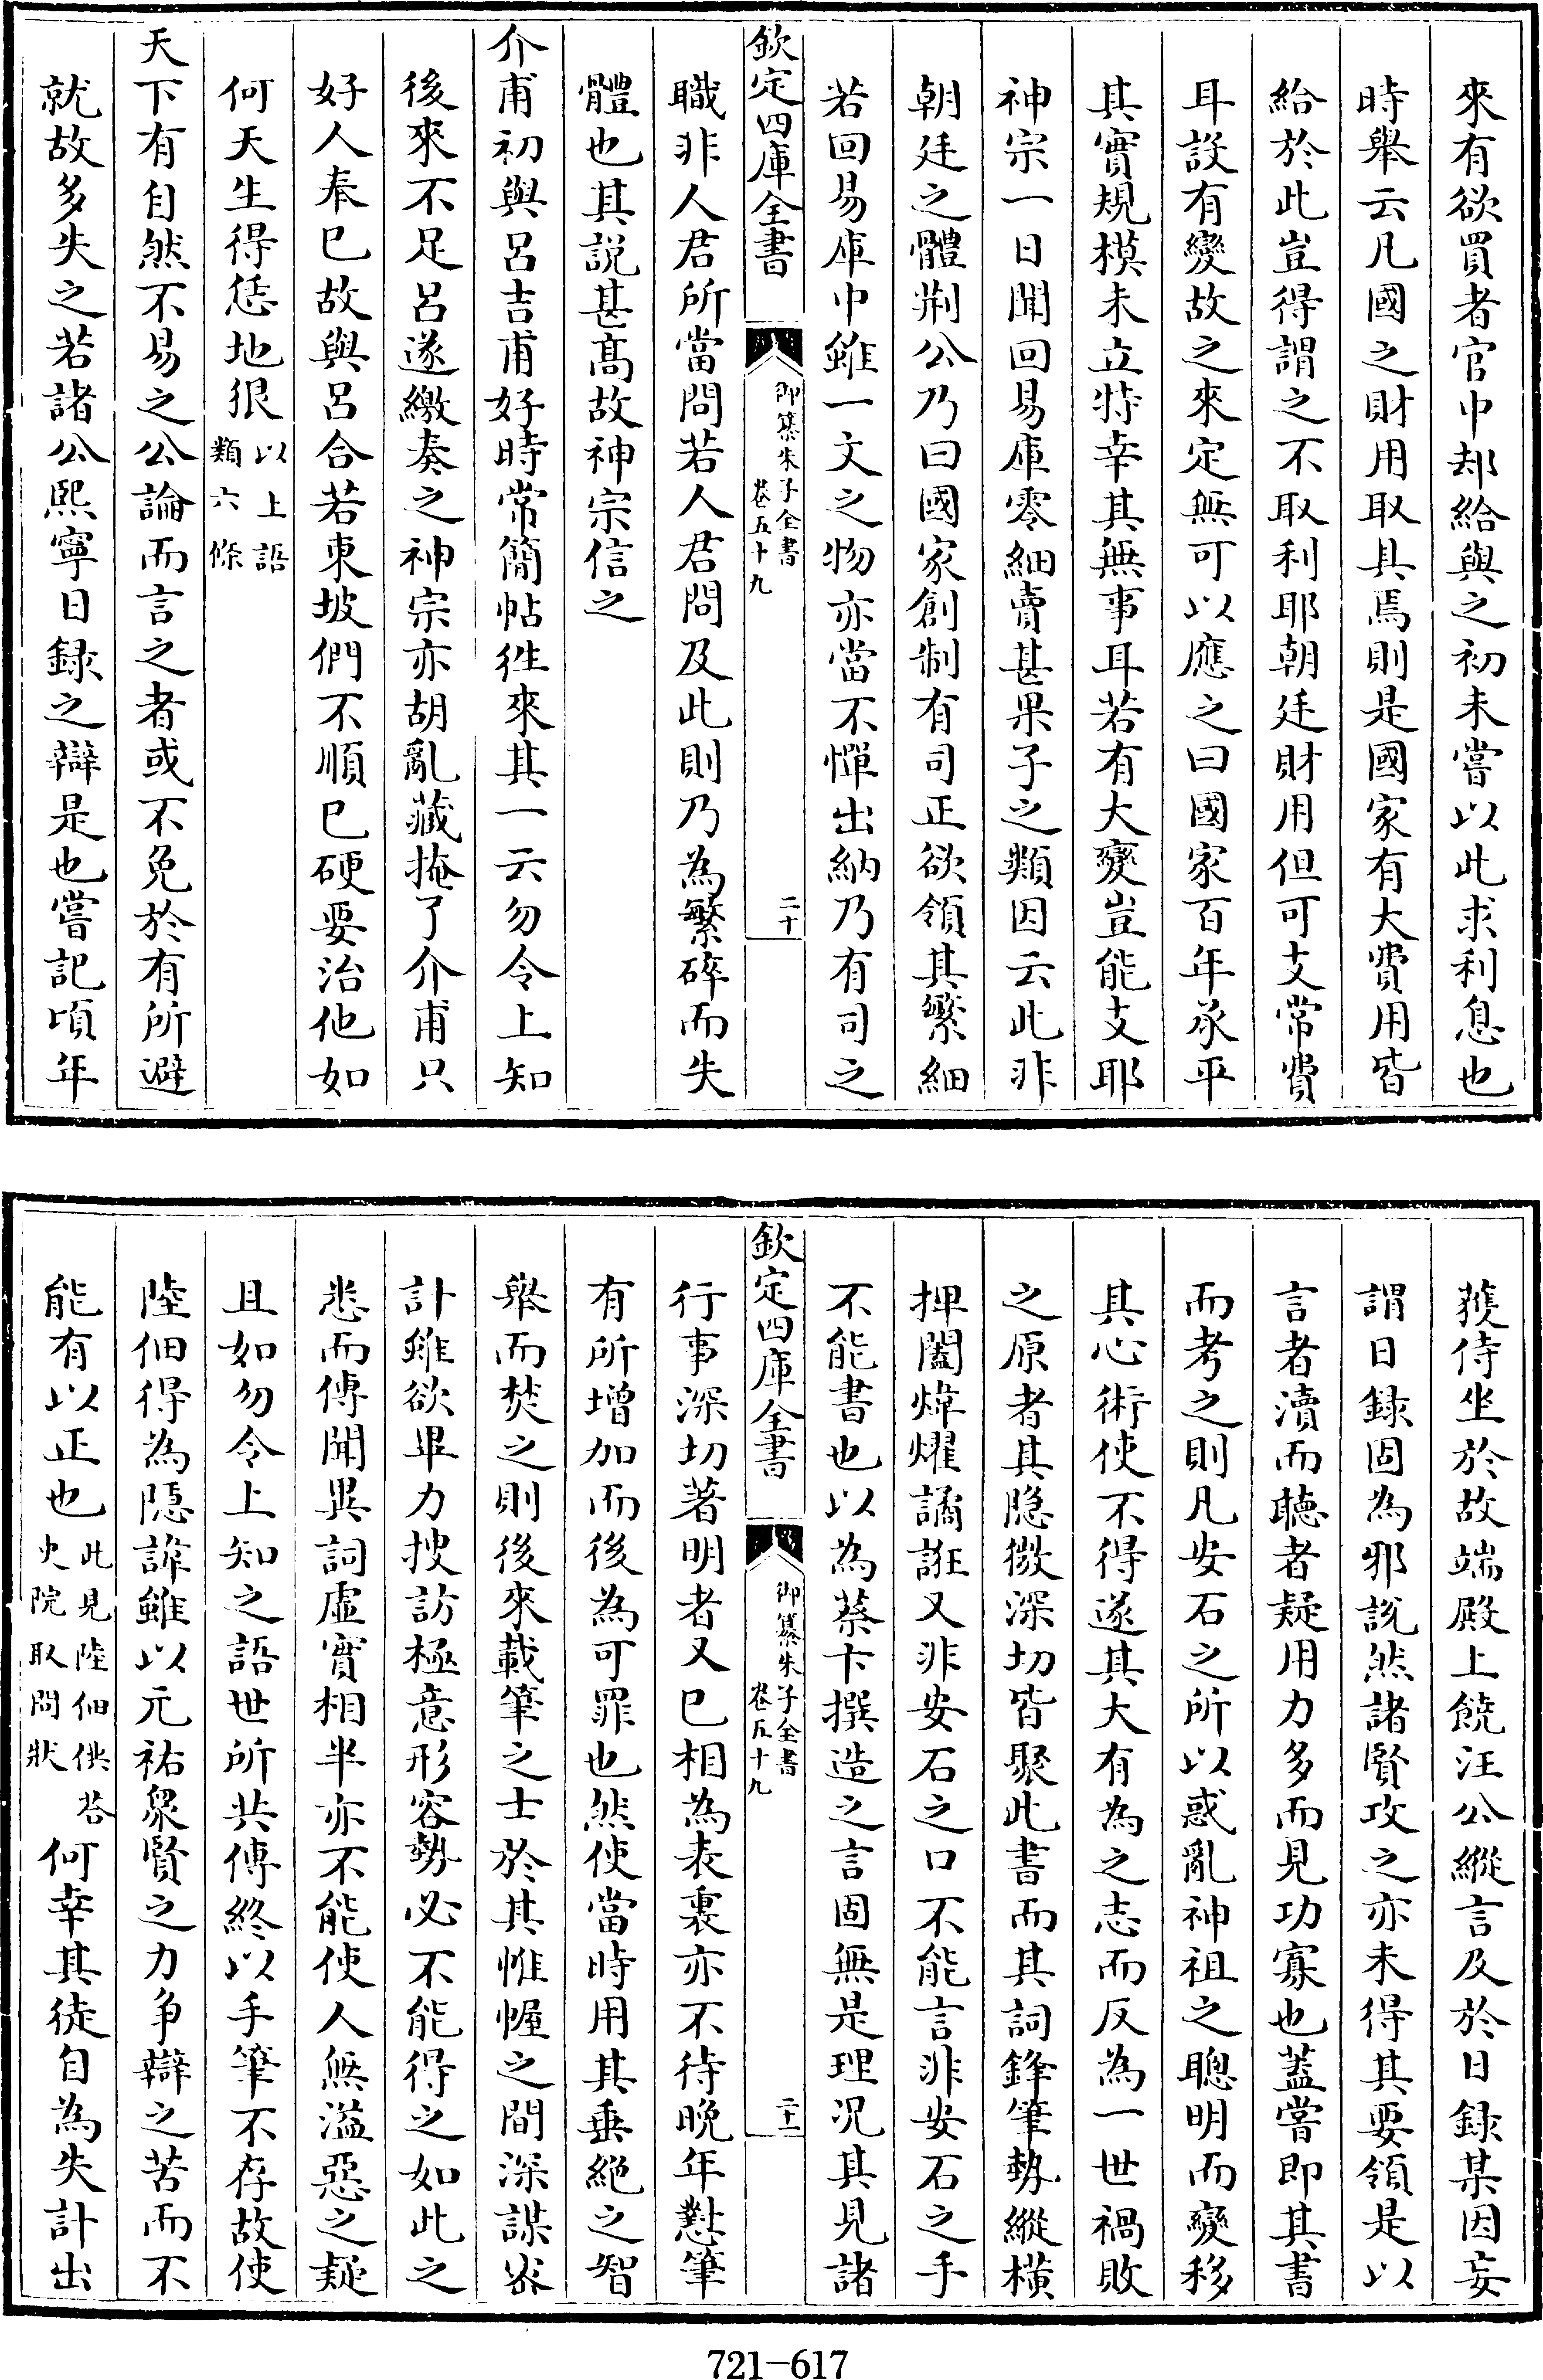 來有欲買者官中却給與之初未嘗以此求利息也
時舉云凡國之財用取具焉則是國家有大費用皆
給於此豈得謂之不取利耶朝廷財用但可支常費
耳設有變故之來定無可以應之曰國家百年承平
其實規模未立特幸其無事耳若有大變豈能支耶
神宗一日聞回易庫零細賣甚果子之類因云此非
朝廷之體荆公乃曰國家創制有司正欲領其繁細
若回易庫中雖一文之物亦當不憚出納乃有司之
欽定四庫全書
御纂朱子全書
卷五十九
二十
職非人君所當問若人君問及此則乃為繁碎而失
體也其説甚髙故神宗信之
介甫初與呂吉甫好時常簡帖徃來其一云勿令上知
後來不足呂遂繳奏之神宗亦胡亂藏掩了介甫只
好人奉已故與呂合若東坡們不順已硬要治他如
何天生得恁地狠
以上語
類六條
天下有自然不易之公論而言之者或不免於有所避
就故多失之若諸公熙寧日録之辯是也嘗記頃年
獲侍坐於故端殿上饒汪公縱言及於日録某因妄
謂日録固為邪説然諸賢攻之亦未得其要領是以
言者瀆而聽者疑用力多而見功寡也蓋嘗即其書
而考之則凡安石之所以惑亂神祖之聰明而變移
其心術使不得遂其大有為之志而反為一世禍敗
之原者其隱微深切皆聚此書而其詞鋒筆勢縱横
押闔煒燿譎誑又非安石之口不能言非安石之手
不能書也以為蔡卞撰造之言固無是理况其見諸
欽定四庫全書
御纂朱子全書
卷五十九
二十一
行事深切著明者又已相為表裏亦不待晚年懟筆
有所增加而後為可罪也然使當時用其垂絶之智
舉而焚之則後來載筆之士於其惟幄之間深謀宻
計雖欲畢力捜訪極意形容勢必不能得之如此之
悉而傅聞異詞虛實相半亦不能使人無溢惡之疑
且如勿令上知之語世所共傅終以手筆不存故使
陸佃得為隱諱雖以元祐衆賢之力爭辯之苦而不
能有以正也
此見陸佃供荅
史院取問狀
何幸其徒自為失計出
721-617